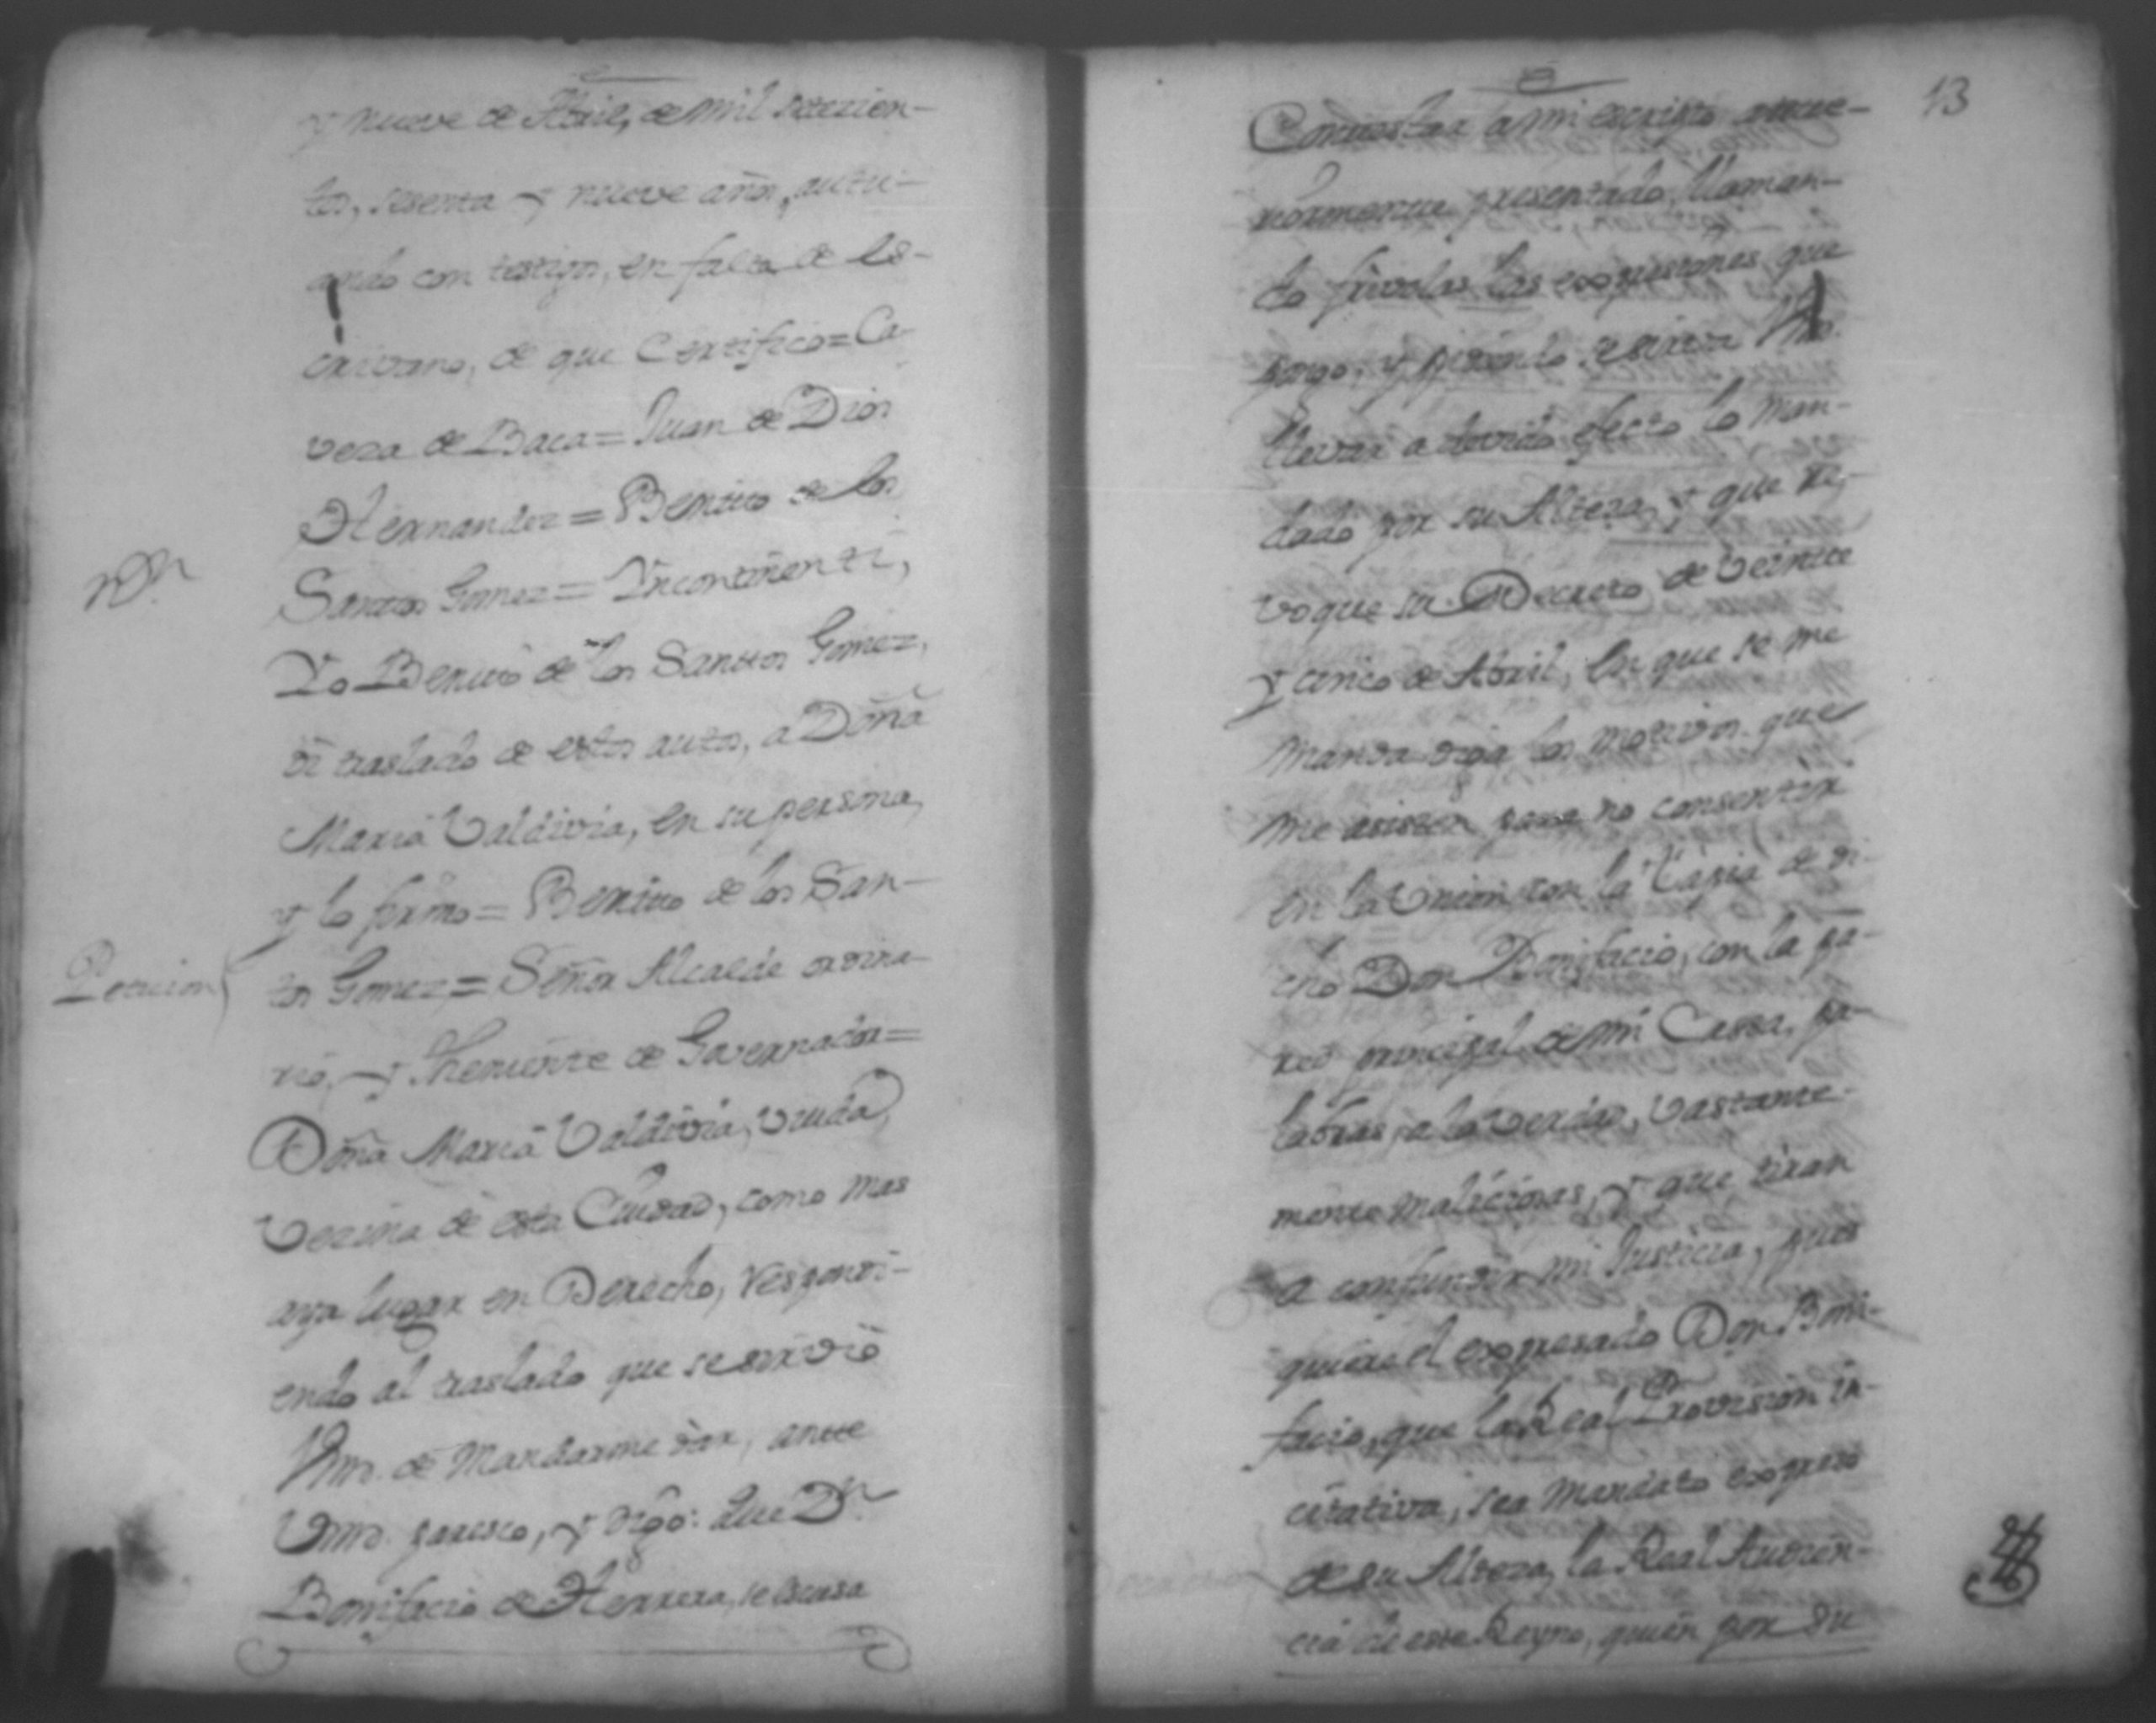 y nueve de Abril, de mil setecien-
tos, sesenta y nueve años, actu-
ando con testigos, en falta de Es-
crivano, de que Certifico = Ca-
veza de Baca = Juan de Dios
Hernandez = Benito de los
Santos Gomez = Yncontinenti,
Yo Benito de los Santtos Gomez,
di traslado de estos autos, a Doña
Maria Valdivia, en su persona,
y lo firmo = Benitto de los San-
Peticion
tos Gomez = Señor Alcalde ordina-
rio, y Theniente de Governador =
Doña Maria Valdivia, viuda,
Vezina de esta Ciudad, como mas
aya lugar en Derecho, respondi-
endo al traslado que se sirvió
Vmd. de Mandarme dar, antte
Vmd. paresco, y digo: que Dn
Bonifacio de Herrera, se escusa
13
Contestar a mi escripto antte-
riormente presentado, llaman-
do frivolas las expresiones que
pongo, y pidiendo se sirva Vmd.
llevar a devido efecto lo Man-
dado por su Alteza, y que re-
voque su Decreto de veintte
y cinco de Abril, en que se me
manda diga los motivos que
me asisten para no consentir
en la Union con la Tapia de di-
cho Don Bonifacio, con la pa-
red principal de mi Cassa, pa-
labras, a la verdad, vastante-
mente maliciosas, y que tiran
a confundir mi Justicia, pues
quiere el expresado Don Boni-
facio, que la Real Provision in-
citativa, sea mandato expreso
de su Alteza, la Real Audien-
cia de este Reyno, quien por su